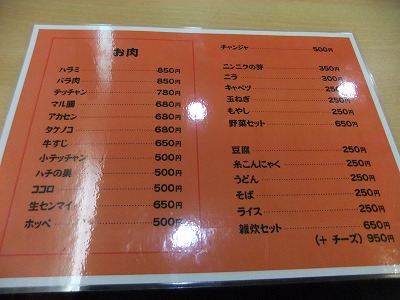 お肉
ハラミ 850円
バラ肉 850円
テッチャン 780円
マル腸 680円
アカセン 680円
タケノコ 680円
牛すじ 650円
小テッチャン 500円
ハチの巣 500円
ココロ 500円
生センマイ 650円
ホッペ 500円
チャンジャ 500円
ニンニクの芽 350円
ニラ 300円
キャベツ 250円
玉ねぎ 250円
もやし 250円
野菜セット 650円
豆腐 250円
糸こんにゃく 250円
うどん 250円
そば 250円
ライス 250円
雑炊セット 650円
(+ チーズ) 950円